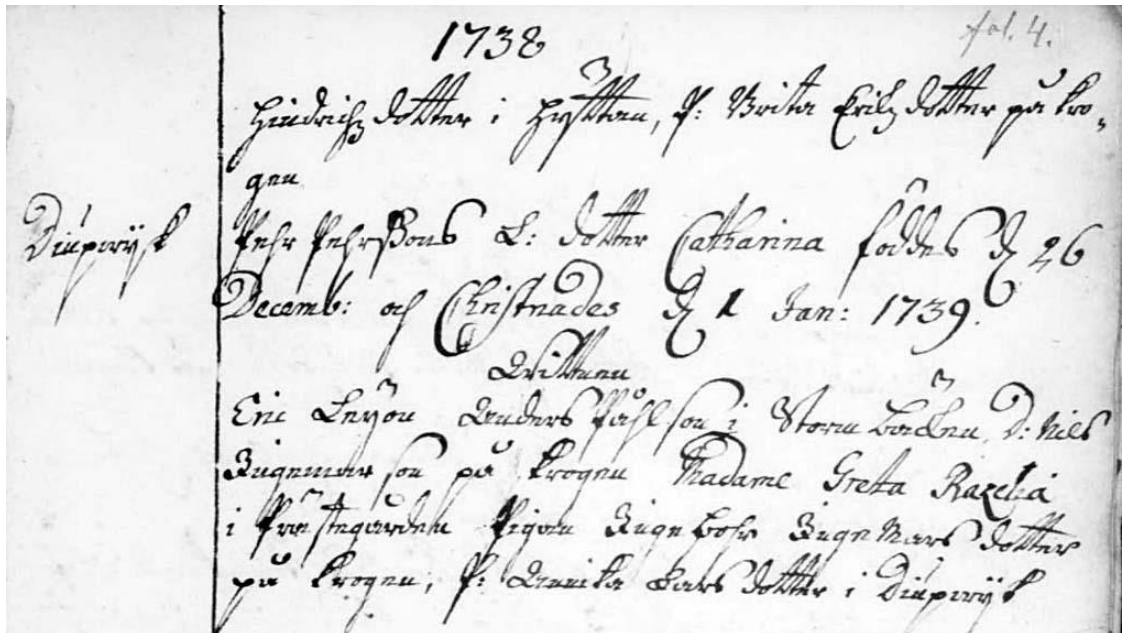 1738
fol. 4.
Hindrichz dotter i Hyttan, P: Brita Erikz dotter på Kro„
gen
Diupwijk
Pehr Pehrßons L: dotter Catharina föddes d 26
Decemb: och Christnades d 1 Jan: 1739.
Wittnen
Eric Leyon Anders Påhlson i Stormbäcken, D: Nils
Ingemarson på Krogen Madame Greta Razelia
i Prästegården Pigan Ingebohr IngeMars dotter
på Krogen, P: Annika Lars dotter i Diupwijk